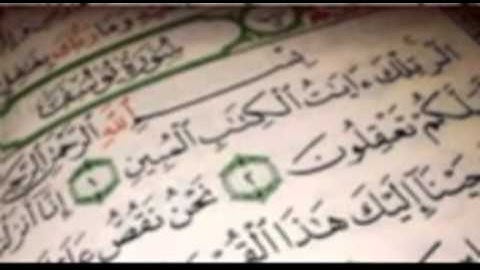 وَمَا رَبُّكَ بِغَٰفِلٍ
سُورَةُ يُوسُفَ
بِسْمِ ٱللَّهِ ٱلرَّحْمَٰنِ ٱلرَّحِيمِ
الٓر تِلْكَ ءَايَٰتُ ٱلْكِتَٰبِ ٱلْمُبِينِ ١ إِنَّآ أَنزَلْ
لَّكُمْ تَعْقِلُونَ ٢ نَحْنُ نَقُصُّ عَلَيْ
حَيْنَآ إِلَيْكَ هَٰذَا ٱلْقُرْ